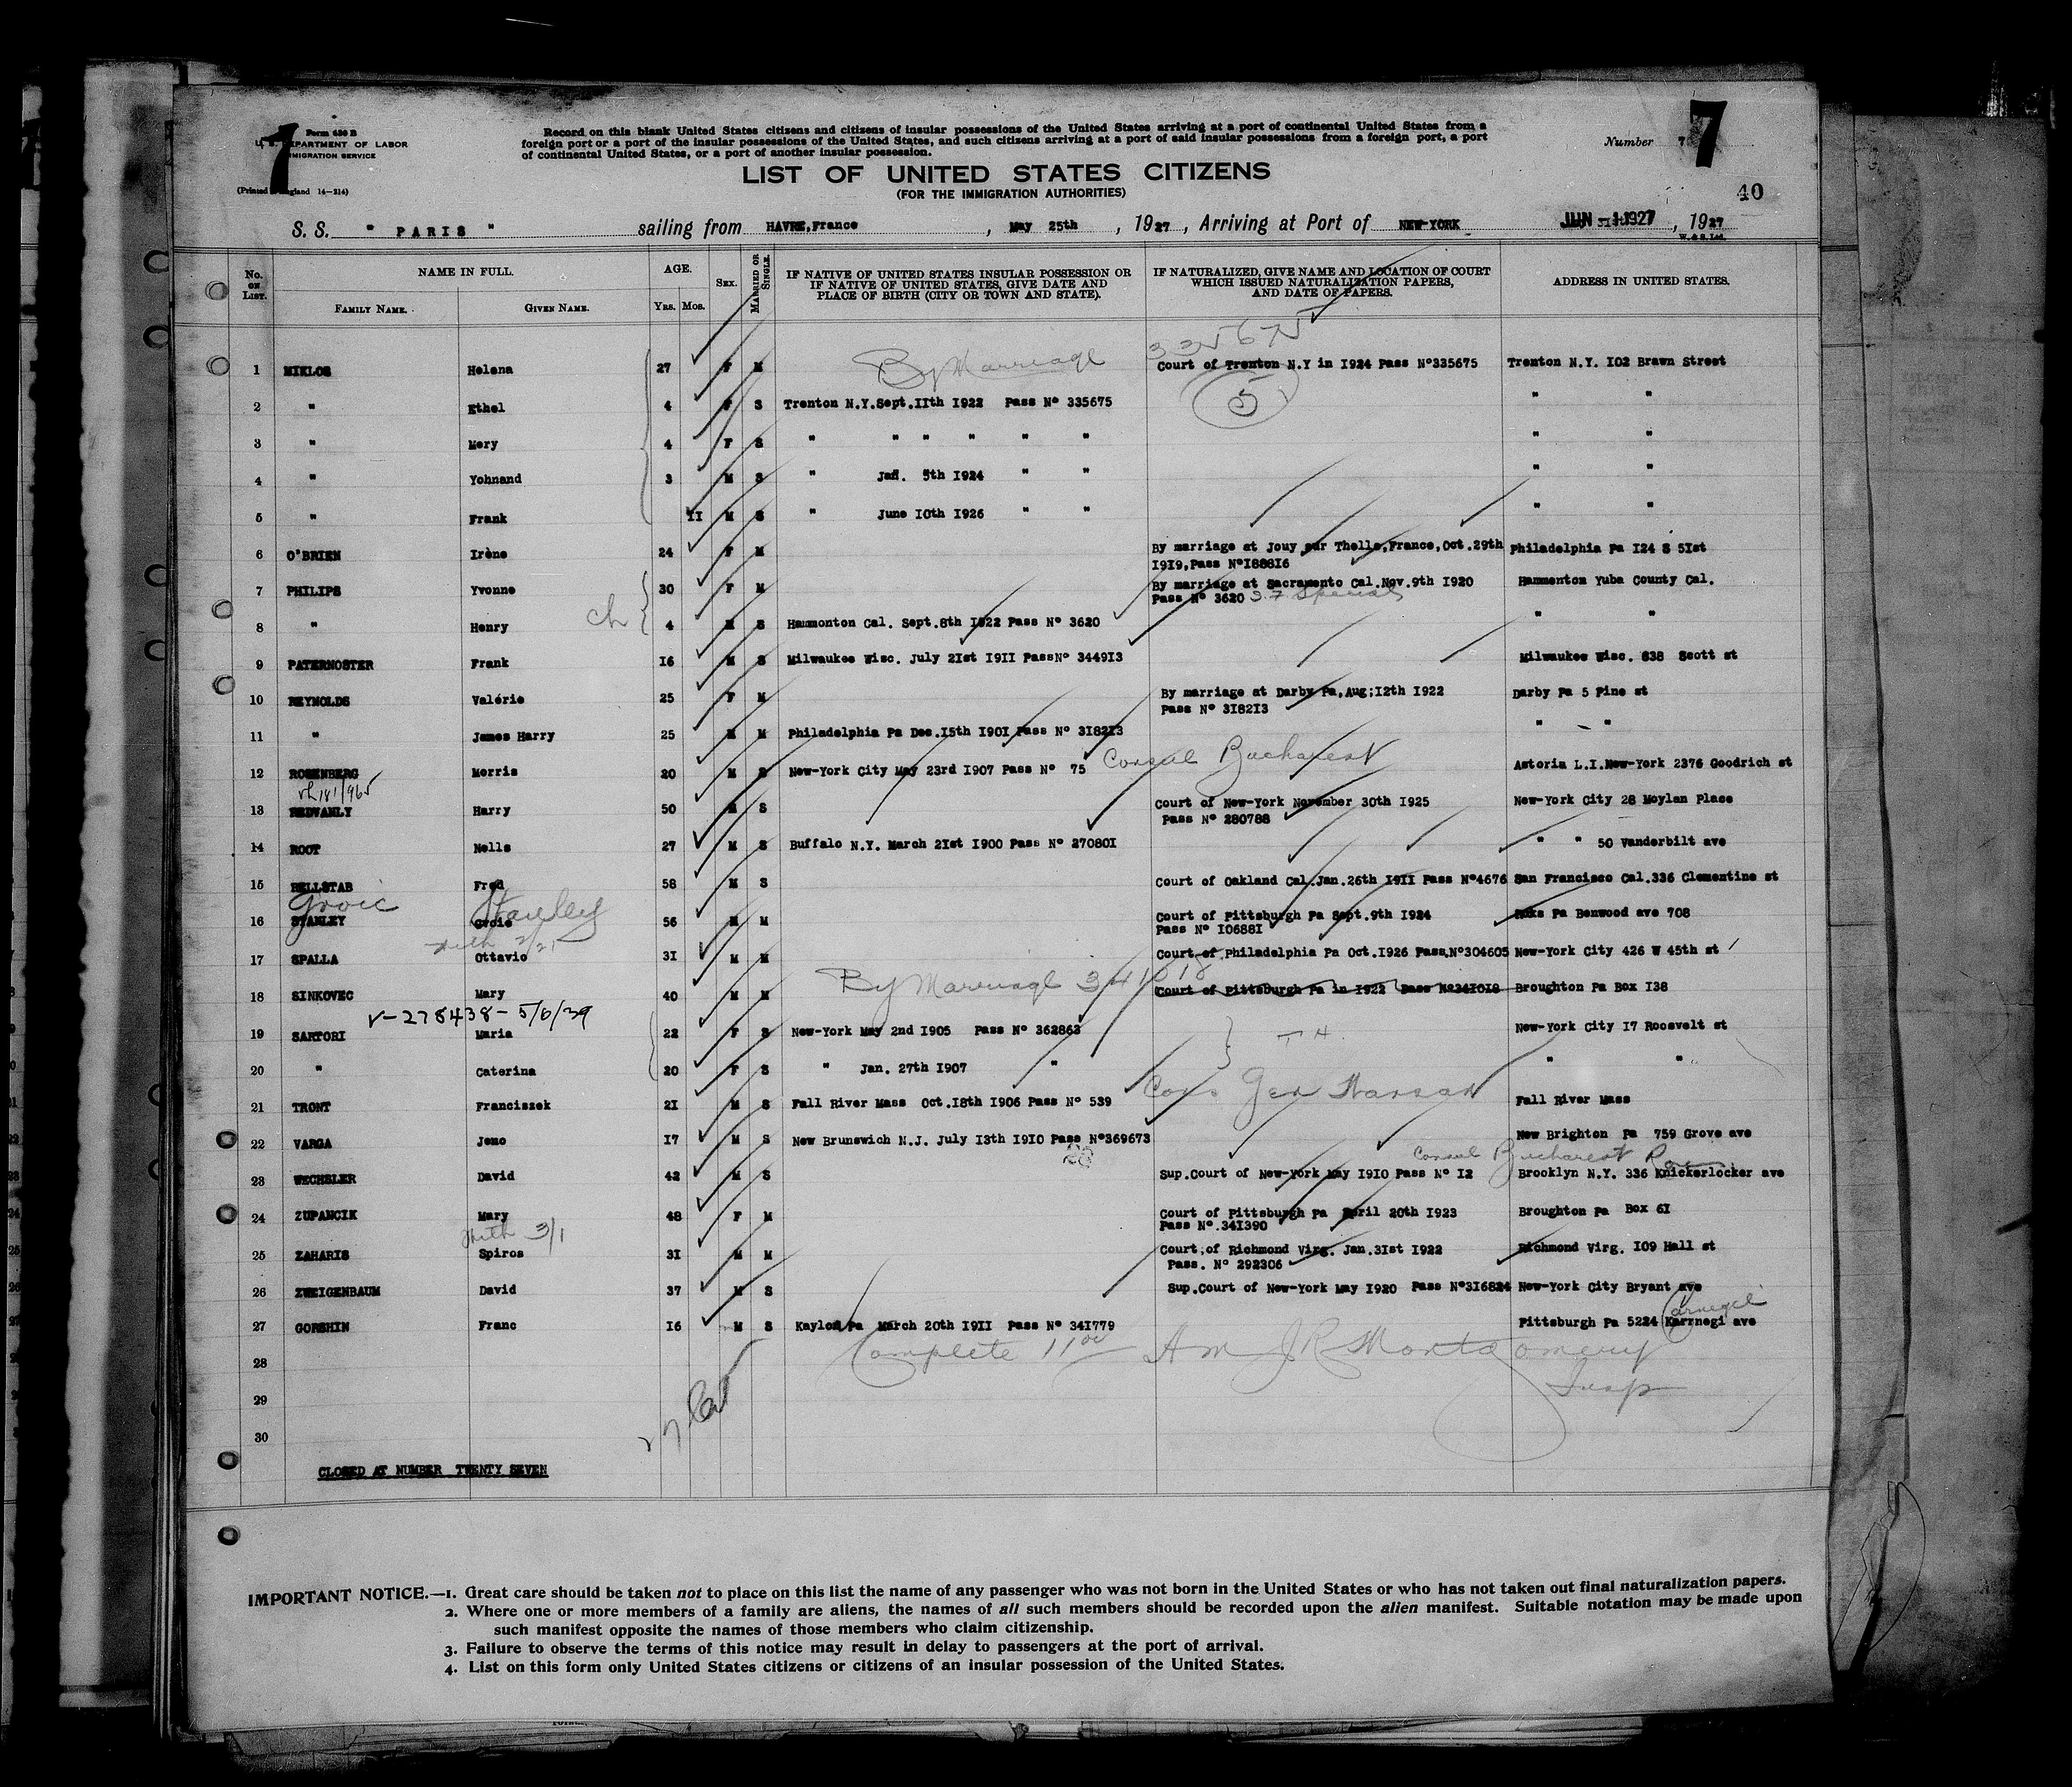 Form 630 B
U. S. DEPARTMENT OF LABOR
IMMIGRATION SERVICE
(Printed in England 14—214)
7
Record on this blank United States citizens and citizens of insular possessions of the United States arriving at a port of continental United States from a
foreign port or a port of the insular possessions of the United States, and such citizens arriving at a port of said insular possessions from a foreign port, a port
of continental United States, or a port of another insular possession.
Number 7
7
LIST OF UNITED STATES CITIZENS
(FOR THE IMMIGRATION AUTHORITIES)
40
S. S. " PARIS " sailing from HAVRE,France , May 25th , 1927 , Arriving at Port of NEW-YORK JUN - 1 1927 , 1927
W. & S. Ltd.
No. ON LIST. NAME IN FULL. AGE. SEX. MARRIED OR SINGLE. IF NATIVE OF UNITED STATES INSULAR POSSESSION OR IF NATIVE OF UNITED STATES, GIVE DATE AND PLACE OF BIRTH (CITY OR TOWN AND STATE). IF NATURALIZED, GIVE NAME AND LOCATION OF COURT WHICH ISSUED NATURALIZATION PAPERS, AND DATE OF PAPERS. ADDRESS IN UNITED STATES.
FAMILY NAME. GIVEN NAME. YRS. MOS.
1 MIKLOS Helena 27 F M By Marriage Court of Trenton N.Y in I924 Pass N°335675 Trenton N.Y. I02 Brawn Street
5
2 " Ethel 4 F S Trenton N.Y.Sept.IIth I922 Pass N° 335675 " "
3 " Mery 4 F S " " " " " " " "
4 " Yohnand 3 M S " Jan. 5th I924 " " " "
5 " Frank II M S " June I0th I926 " " " "
6 O'BRIEN Irène 24 F M By marriage at Jouy sur Thelle,France,Oct.29th Philadelphia Pa I24 S 5Ist
I9I9,Pass N°I888I6
7 PHILIPS Yvonne 30 F M By marriage at Sacramento Cal.Nov.9th I920 Hammenton Yuba County Cal.
Pass N° 3620 S.F. Special
ch
8 " Henry 4 M S Hammonton Cal. Sept.8th I922 Pass N° 3620 " "
9 PATERNOSTER Frank I6 M S Milwaukee Wisc. July 2Ist I9II PassN° 3449I3 Milwaukee Wisc. 838 Scott st
10 REYNOLDS Valérie 25 F M By marriage at Darby Pa,Aug;I2th I922 Darby Pa 5 Pine st
Pass N° 3I82I3
11 " James Harry 25 M M Philadelphia Pa Dec.I5th I90I Pass N° 3I82I3 " "
12 ROSENBERG Morris 20 M S New-York City May 23rd I907 Pass N° 75 Consul Bucharest Astoria L.I.New-York 2376 Goodrich st
13 REDVANLY Harry 50 M S Court of New-York November 30th I925 New-York City 28 Moylan Place
Pass N° 280788
14 ROOT Nells 27 M S Buffalo N.Y. March 2Ist I900 Pass N° 27080I " " 50 Vanderbilt ave
15 RELLSTAB Fred 58 M S Court of Oakland Cal.Jan.26th I9II Pass N°4676 San Francisco Cal.336 Clementine st
Groic Stanley
16 STANLEY Groic 56 M M Court of Pittsburgh Pa Sept.9th I924 Pa Benwood ave 708
Pass N° I0688I
17 SPALLA Ottavio 3I M M Court of Philadelphia Pa Oct.I926 Pass.N°304605 New-York City 426 W 45th st
By Marriage 341018
18 SINKOVEC Mary 40 M M Court of Pittsburgh Pa in I922 Pass N°34I0I8 Broughton Pa Box I38
V-278438-5/6/39
19 SARTORI Maria 22 F S New-York May 2nd I905 Pass N° 362863 New-York City I7 Roosevelt st
20 " Caterina 20 F S " Jan. 27th I907 " " "
21 TRONT Franciszek 2I M S Fall River Mass Oct.I8th I906 Pass N° 539 Cons Gen Warsaw Fall River Mass
22 VARGA Jeno I7 M S New Brunswich N.J. July I3th I9I0 Pass N°369673 New Brighton Pa 759 Grove ave
Consul Bucharest
23 WECHSLER David 42 M S Sup.Court of New-York May I9I0 Pass N° I2 Brooklyn N.Y. 336 Knickerlocker ave
24 ZUPANCIK Mary 48 F M Court of Pittsburgh Pa April 20th I923 Broughton Pa Box 6I
Pass N°.34I390
25 ZAHARIS Spiros 3I M M Court of Richmond Virg. Jan.3Ist I922 Richmond Virg. I09 Hall st
Pass. N° 292306
26 ZWEIGENBAUM David 37 M S Sup.Court of New-York May I920 Pass N°3I6824 New-York City Bryant ave
Carnegie
27 GORSHIN Franc I6 M S Kaylor Pa March 20th I9II Pass N° 34I779 Pittsburgh Pa 5224 Karrnegi ave
28 Complete 11 00 Am J R Montgomery
29 Insp
30
CLOSED AT NUMBER TWENTY SEVEN
IMPORTANT NOTICE.—1. Great care should be taken not to place on this list the name of any passenger who was not born in the United States or who has not taken out final naturalization papers.
2. Where one or more members of a family are aliens, the names of all such members should be recorded upon the alien manifest. Suitable notation may be made upon
such manifest opposite the names of those members who claim citizenship.
3. Failure to observe the terms of this notice may result in delay to passengers at the port of arrival.
4. List on this form only United States citizens or citizens of an insular possession of the United States.